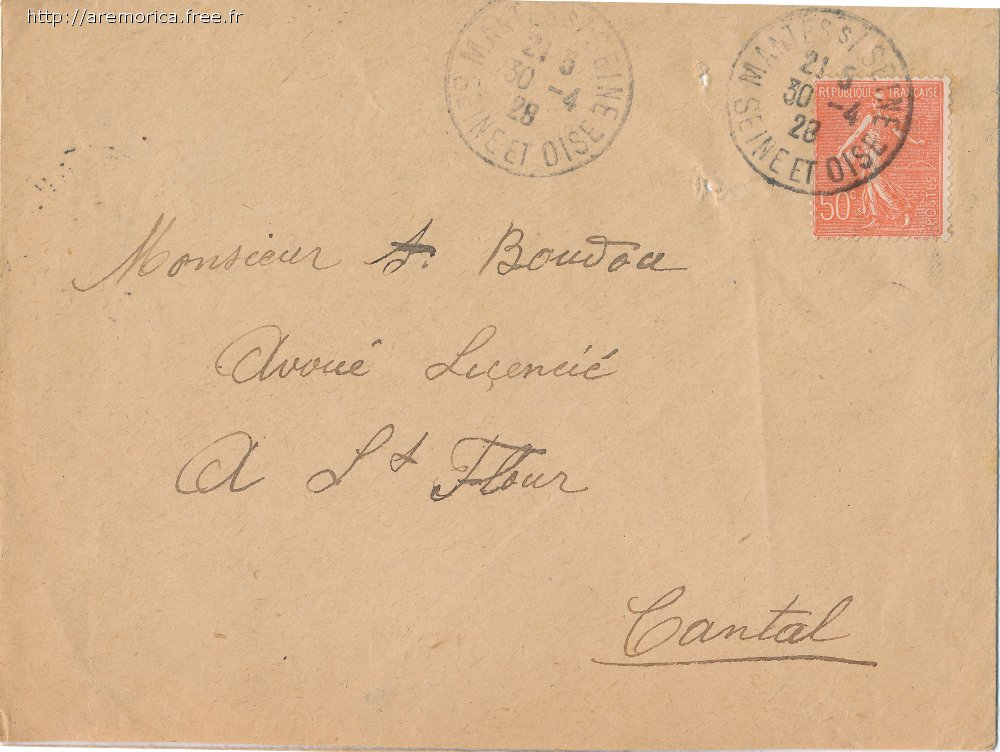 http://aremorica.free.fr
MANTES S/ SEINE
21 5
30 -4
28
SEINE ET OISE
MANTES S/ SEINE
21 5
30 -4
28
SEINE ET OISE
REPUBLIQUE FRANÇAISE
50c
POSTES
Monsieur A. Boudou
Avoué Liçencié
A St Flour
Cantal